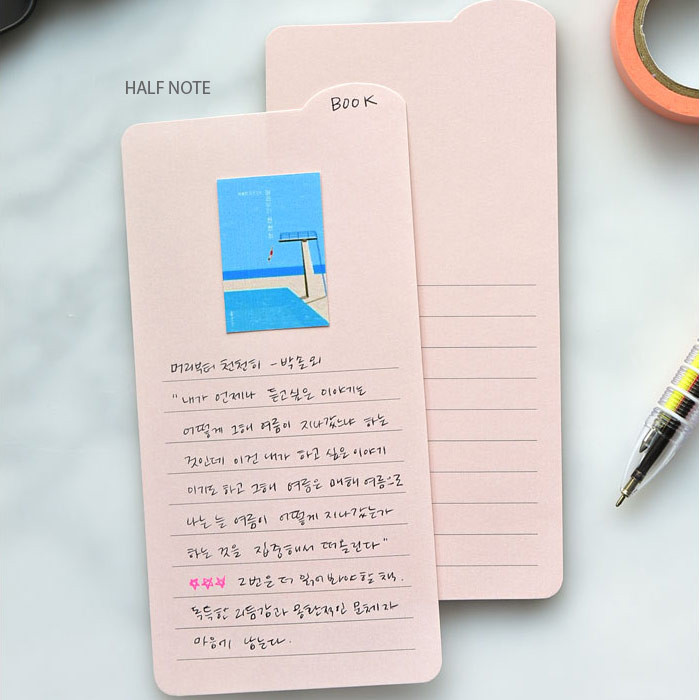 HALF NOTE
BOOK
머리부터 천천히 - 박솔뫼
"내가 언제나 듣고싶은 이야기는
어떻게 그해 여름이 지나갔느냐 하는
것인데 이건 내가 하고 싶은 이야기
이기도 하고 그해 여름은 매해 여름으로
나는 늘 여름이 어떻게 지나갔는가
하는 것을 집중해서 떠올린다"
☆☆☆ 2번은 더 읽어봐야할 책.
독특한 리듬감과 몽환적인 문체가
마음에 남는다.